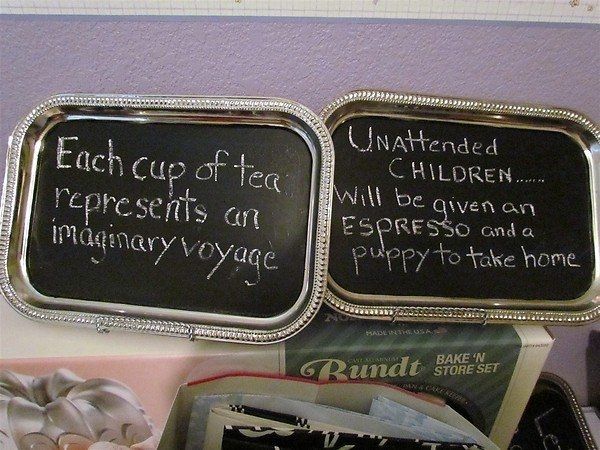 Each cup of tea
represents an
imaginary voyage
UNAttended
CHILDREN......
Will be given an
ESPRESSO and a
puppy to take home
MADE IN THE U.S.A.
CAST ALUMINUM
Bundt
BAKE 'N
STORE SET
PAN & CAKE KEEPER